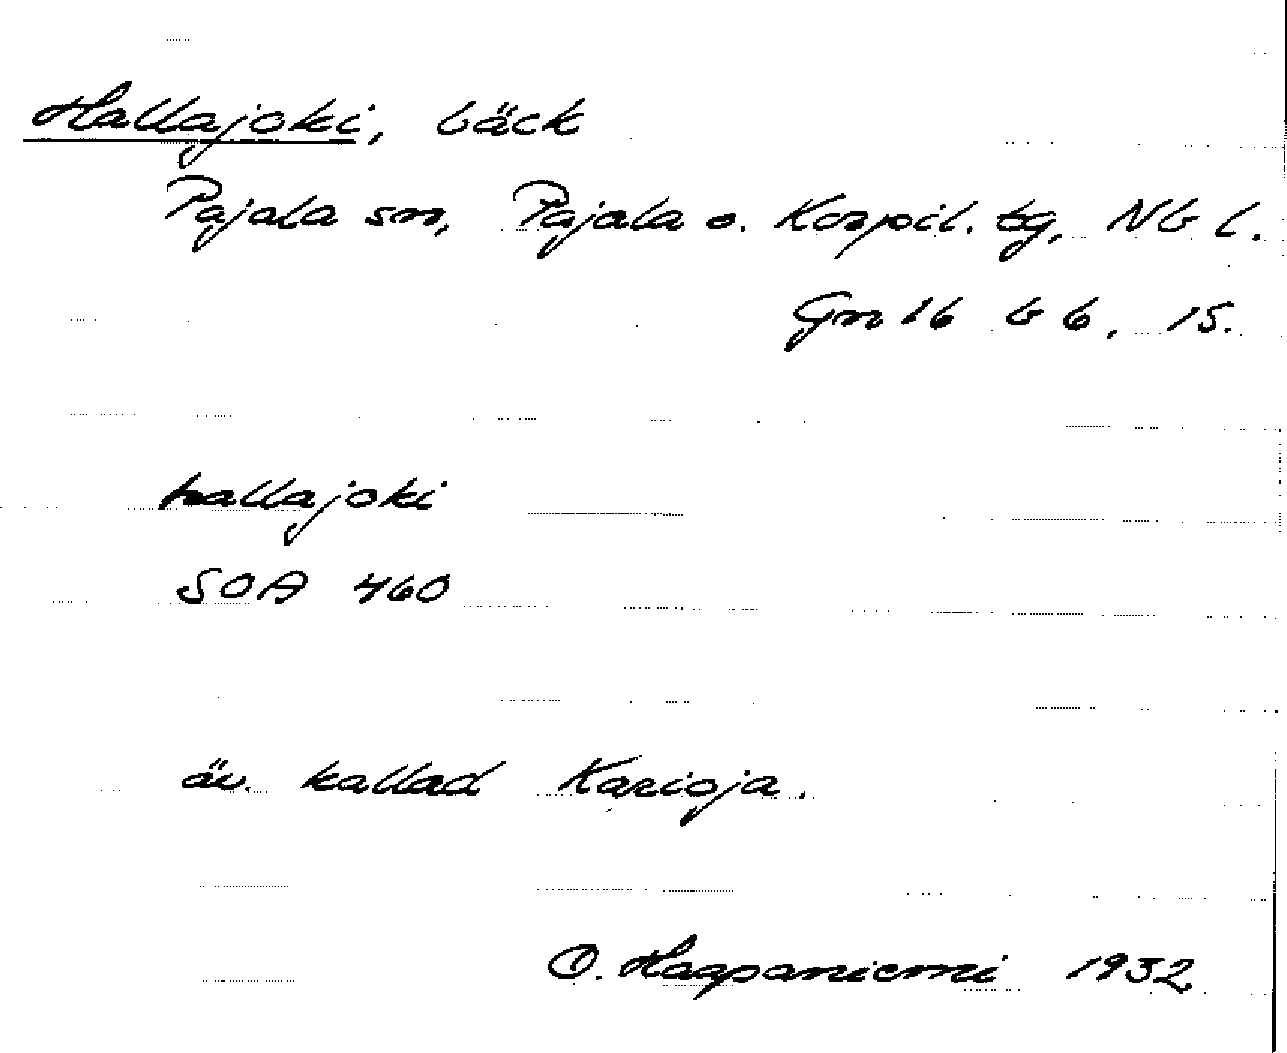 Hallajoki, bäck
Pajala sn, Pajala o. Korpil. tg, Nb l.
Gn 16 b 6, 15.
hallajoki
SOA 460
äv. kallad Karioja.
O. Haapaniemi 1932